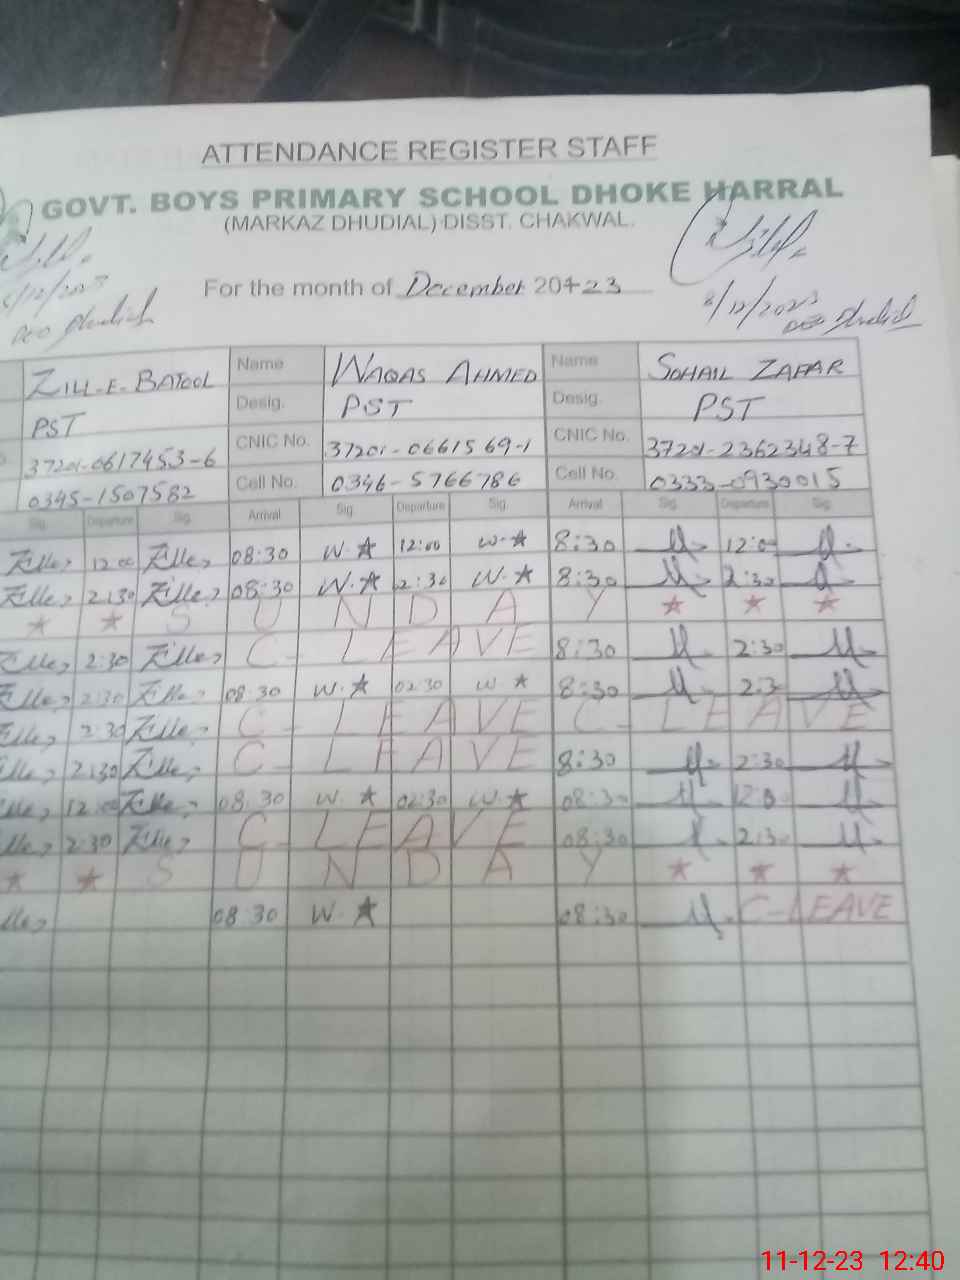 ATTENDANCE REGISTER STAFF
GOVT. BOYS PRIMARY SCHOOL DHOKE HARRAL
(MARKAZ DHUDIAL) DISST. CHAKWAL.
/12/2023
Dhudial
For the month of December 2023
8/12/2023
Dhudial
ZILL-E-BATOOL Name WAQAS AHMED Name SOHAIL ZAFAR
PST Desig. PST Desig. PST
37201-0617453-6 CNIC No. 37201-0661569-1 CNIC No. 37201-2362348-7
0345-1507582 Cell No. 0346-5766786 Cell No. 0333-0930015
Sig. Departure Sig. Arrival Sig. Departure Sig. Arrival Sig. Departure Sig.
Zille 12:00 Zille 08:30 W.★ 12:00 W.★ 8:30 12:00
Zille 2:30 Zille 08:30 W.★ 2:30 W.★ 8:30 2:30
★ ★ S U N D A Y ★ ★ ★
Zille 2:30 Zille C-LEAVE 8:30 2:30
Zille 2:30 Zille 08:30 W.★ 02:30 W.★ 8:30 2:3
Zille 2:30 Zille C-LEAVE C-LEAVE
Zille 2:30 Zille C-LEAVE 8:30 2:30
Zille 12:00 Zille 08:30 W.★ 02:30 W.★ 08:30 12:0
Zille 2:30 Zille C-LEAVE 08:30 2:30
★ ★ S U N D A Y ★ ★ ★
08:30 W.★ 08:30 C-LEAVE
11-12-23 12:40